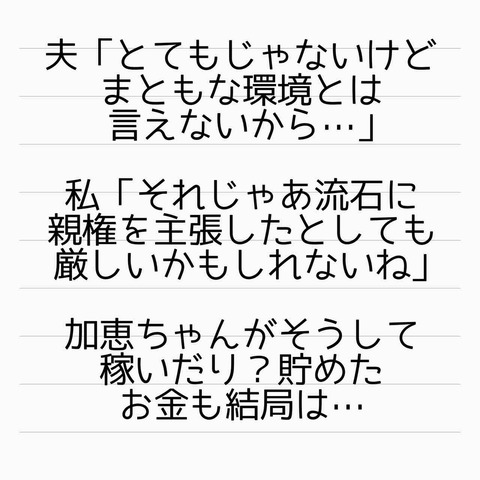 夫「とてもじゃないけど
まともな環境とは
言えないから…」
私「それじゃあ流石に
親権を主張したとしても
厳しいかもしれないね」
加恵ちゃんがそうして
稼いだり？貯めた
お金も結局は…